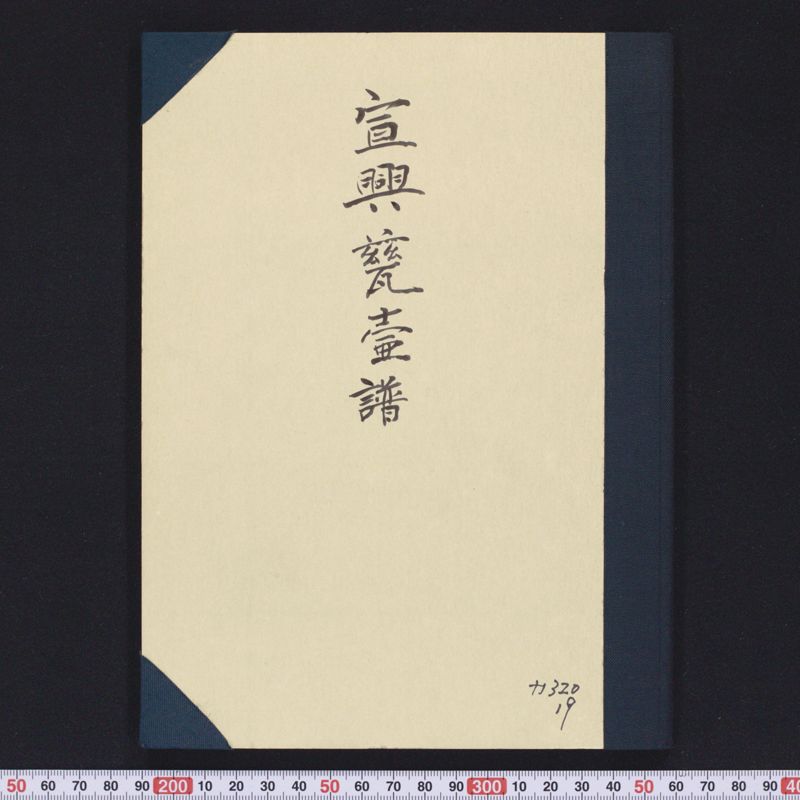 宣興甆壷譜
320
19
50 60 70 80 90 200 10 20 30 40 50 60 70 80 90 300 10 20 30 40 50 60 70 80 90 40